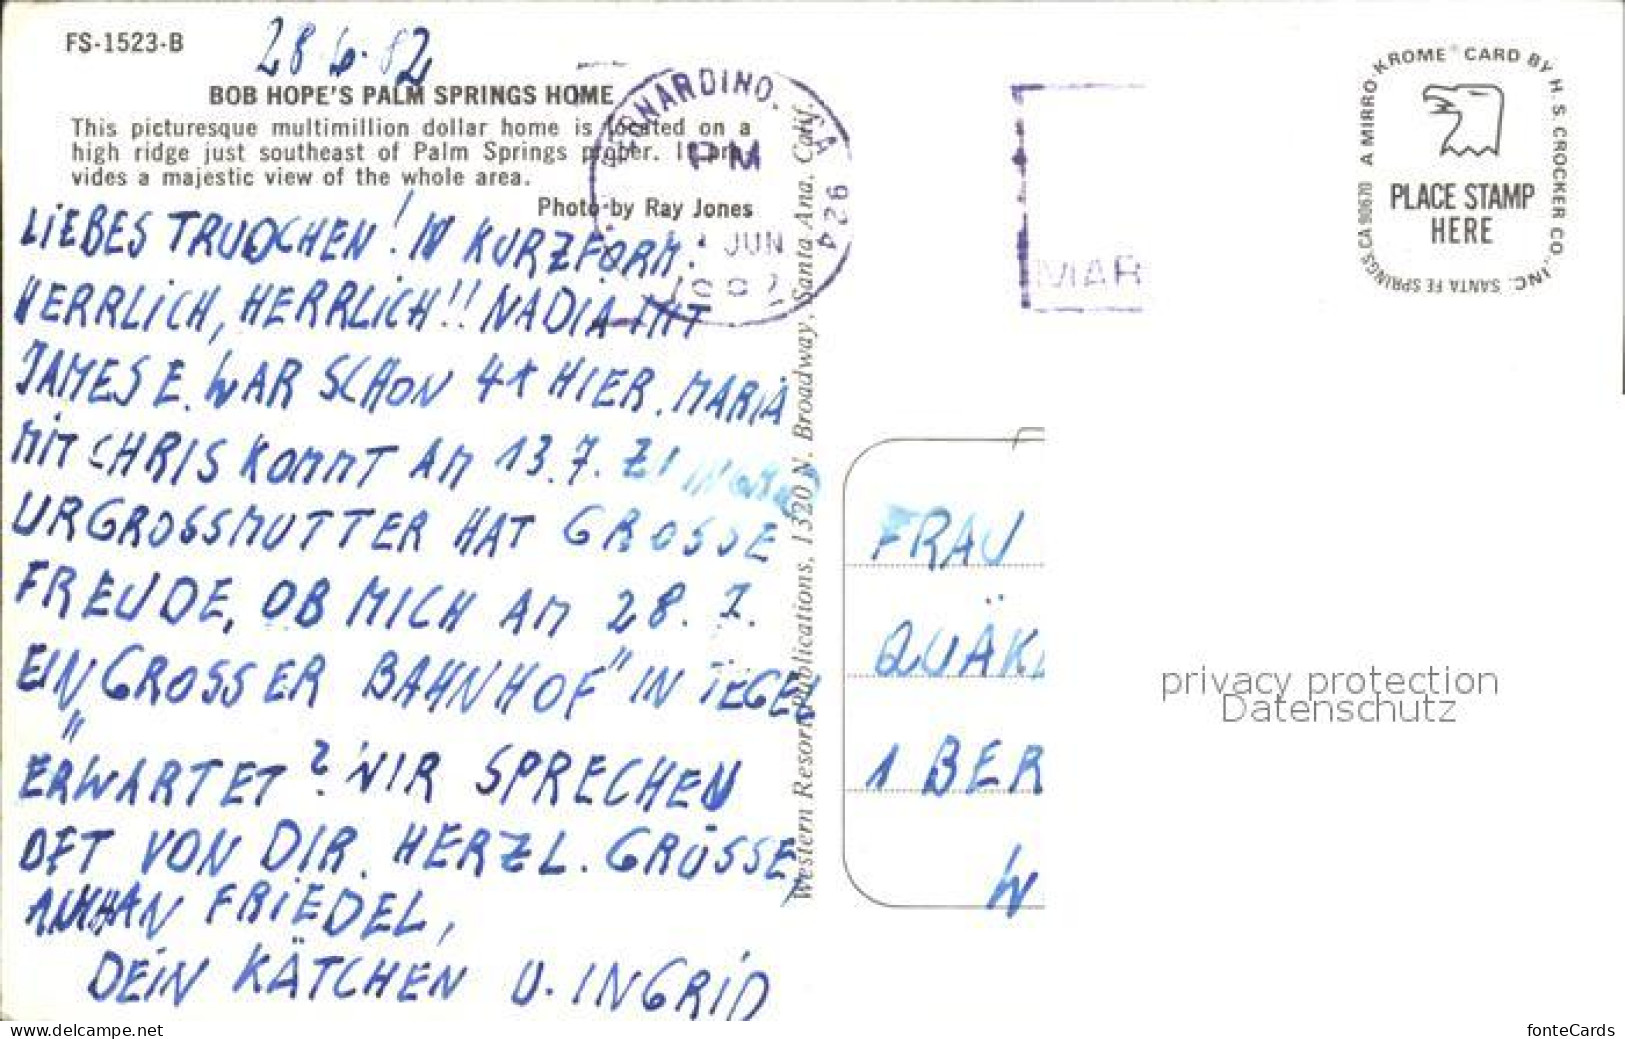 FS-1523-B
28.6.82
BOB HOPE'S PALM SPRINGS HOME
This picturesque multimillion dollar home is located on a
high ridge just southeast of Palm Springs proper. It pro-
vides a majestic view of the whole area.
Photo by Ray Jones
LIEBES TRUDCHEN! IN KURZFORM:
HERRLICH, HERRLICH!! NADIA MIT
JAMES E. WAR SCHON 4X HIER. MARIA
MIT CHRIS KOMMT AM 13.7.
URGROSSMUTTER HAT GROSSE
FREUDE, OB MICH AM 28.7.
EIN „GROSSER BAHNHOF" IN TEGEL
ERWARTET? WIR SPRECHEN
OFT VON DIR. HERZL. GRÜSSE,
FRIEDEL,
DEIN KÄTCHEN U. INGRID
BERNARDINO, CA 924
PM
JUN
Western Resort Publications, 1320 N. Broadway, Santa Ana, Calif.
MAR
A MIRRO-KROME® CARD BY H. S. CROCKER CO., INC. SANTA FE SPRINGS, CA 90670
PLACE STAMP
HERE
FRAU
QUÄK
1 BER
W
privacy protection
Datenschutz
www.delcampe.net
fonteCards